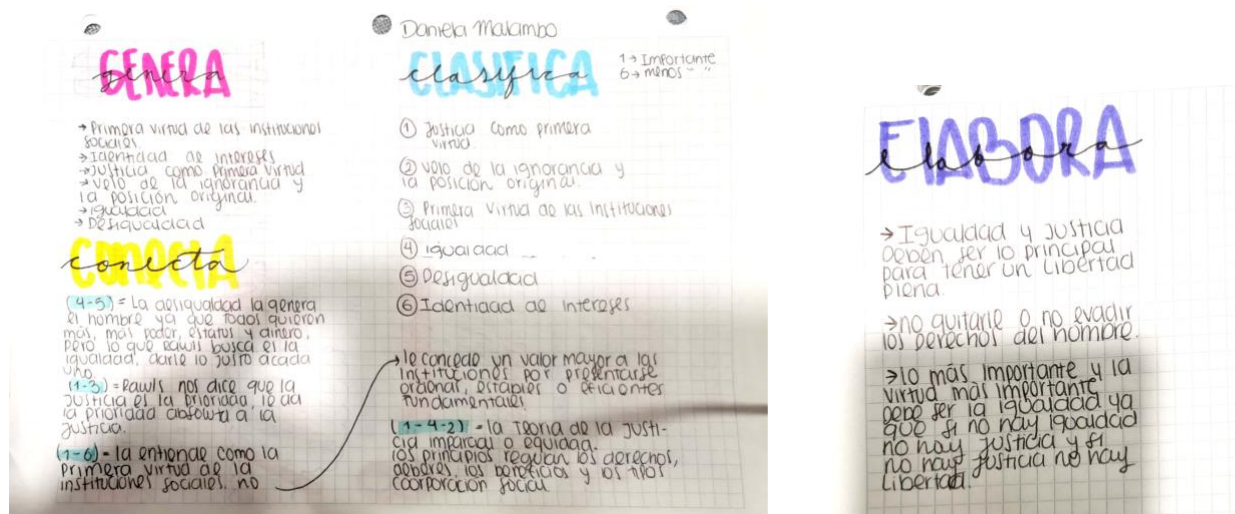 GENERA
genera
→ Primera virtud de las instituciones
sociales.
→ Identidad de intereses
→ Justicia como primera virtud
→ velo de la ignorancia y
la posición original.
→ igualdad
→ Desigualdad
CONECTA
conecta
(4-5) = La desigualdad la genera
el hombre ya que todos quieren
más, más poder, estatus y dinero,
pero lo que Rawls busca es la
igualdad, darle lo justo a cada
uno.
(1-3) = Rawls nos dice que la
justicia es la prioridad, le da
la prioridad absoluta a la
justicia.
(1-6) = la entiende como la
primera virtud de la
instituciones sociales, no
Daniela Malambo
CLASIFICA
clasifica
1 → Importante
6 → menos " "
① Justicia como primera
virtud.
② velo de la ignorancia y
la posición original.
③ Primera virtud de las Instituciones
sociales
④ igualdad
⑤ Desigualdad
⑥ Identidad de intereses
le concede un valor mayor a las
instituciones por presentarse
ordenar, estables o eficientes
fundamentales
(1-4-2) = la Teoria de la justi-
cia imparcial o equidad.
los principios regulan los derechos,
deberes, los beneficios y los tipos
coorporación social
ELABORA
elabora
→ Igualdad y justicia
Deben ser lo principal
para tener un libertad
plena.
→ no quitarle o no evadir
los derechos del hombre.
→ lo más importante y la
virtud más importante
debe ser la igualdad ya
que si no hay igualdad
no hay justicia y si
no hay justicia no hay
libertad.